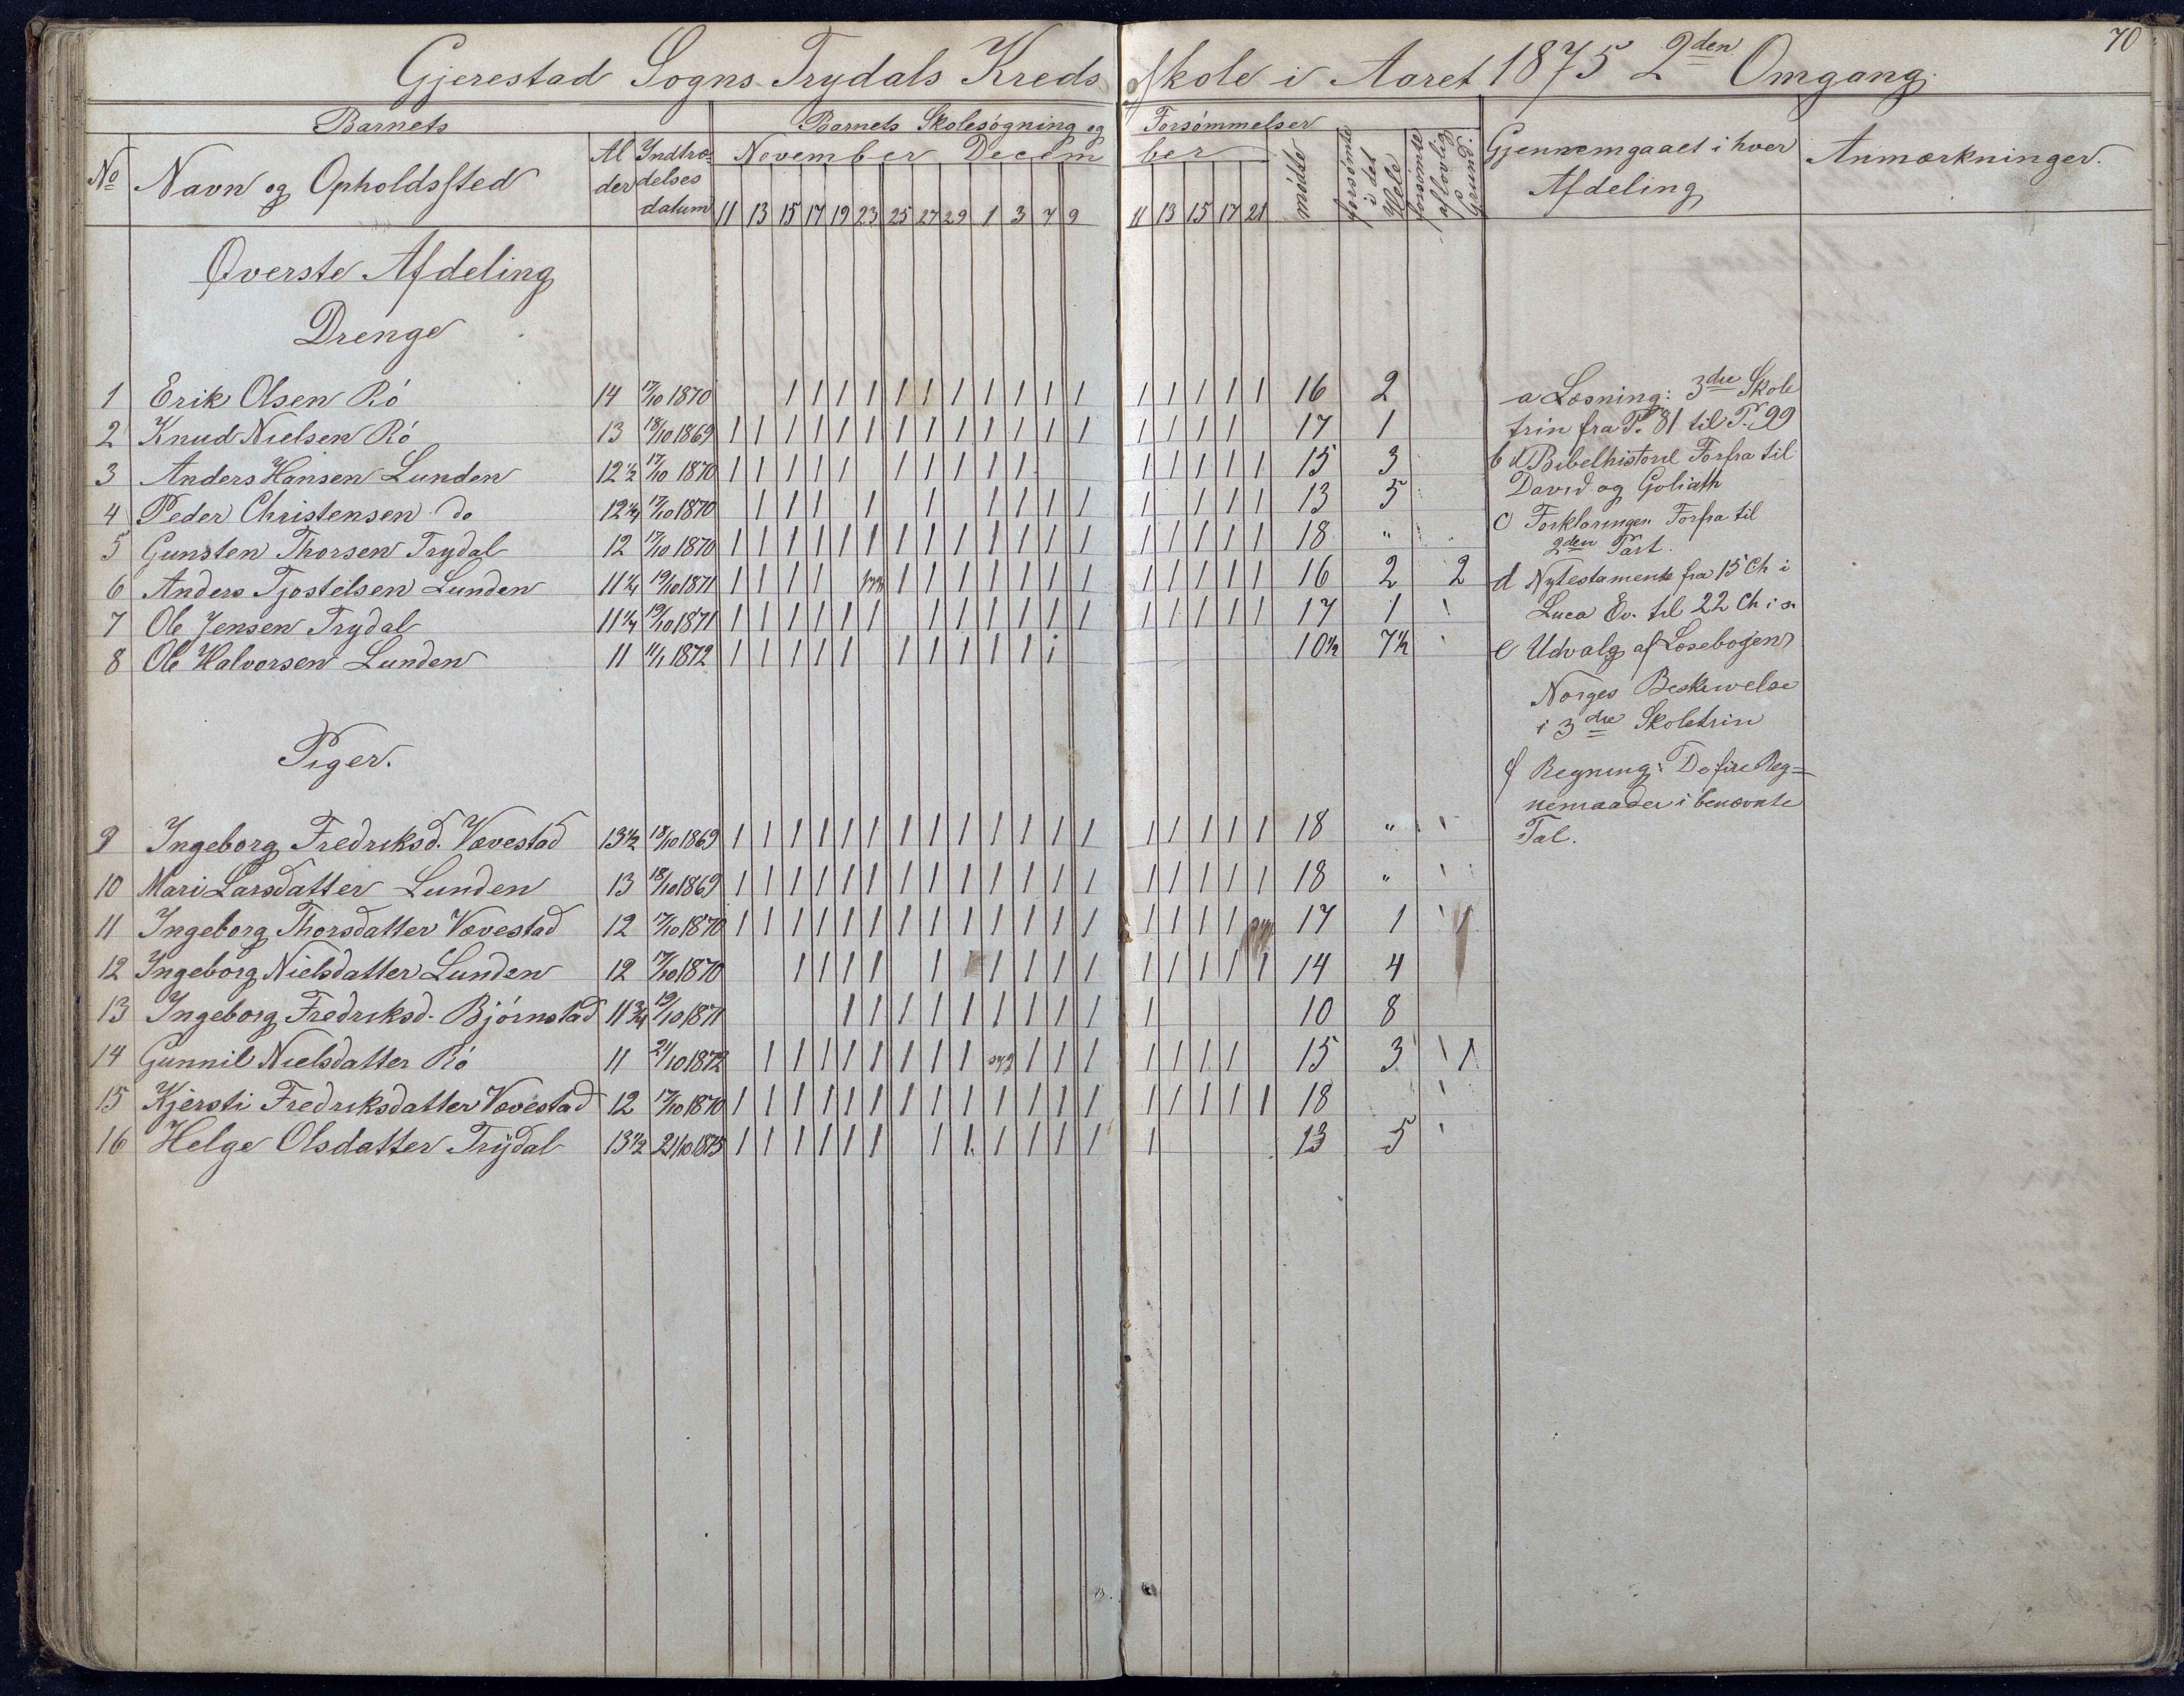 70
Gjerestad Sogns Trydals Kreds Skole i Aaret 1875 2den Omgang.
Barnets | Barnets Skolesøgning og Forsømmelser
No | Navn og Opholdssted | Alder | Indtrædelses datum | November Decem ber | mødte | forsømte i det Hele | forsømte af lovlig Grund | Gjennemgaaet i hver Afdeling | Anmærkninger.
11 13 15 17 19 23 25 27 29 1 3 7 9 11 13 15 17 21
Øverste Afdeling
Drenge
1 Erik Olsen Rö 14 17/10 1870 | | | | | | | | | | | | | | | | 16 2
2 Knud Nielsen Rö 13 18/10 1869 | | | | | | | | | | | | | | | | | 17 1
3 Anders Hansen Lunden 12 1/2 17/10 1870 | | | | | | | | | | | | | | | 15 3
4 Peder Christensen do 12 1/4 17/10 1870 | | | | | | | | | | | | | 13 5
5 Gunsten Thorsen Trydal 12 17/10 1870 | | | | | | | | | | | | | | | | | | 18 "
6 Anders Tjostelsen Lunden 11 1/4 19/10 1871 | | | | syg | | | | | | | | | | | | 16 2 2
7 Ole Jensen Trydal 11 1/4 19/10 1871 | | | | | | | | | | | | | | | | | 17 1
8 Ole Halvorsen Lunden 11 11/1 1872 | | | | | | | | | | i 10 1/2 7 1/2
Piger.
9 Ingeborg Fredriksd. Vævestad 13 1/2 18/10 1869 | | | | | | | | | | | | | | | | | | 18 "
10 Mari Larsdatter Lunden 13 18/10 1869 | | | | | | | | | | | | | | | | | | 18 "
11 Ingeborg Thorsdatter Vævestad 12 17/10 1870 | | | | | | | | | | | | | | | | | syg 17 1 1
12 Ingeborg Nielsdatter Lunden 12 17/10 1870 | | | | | | | | | | | | | | 14 4
13 Ingeborg Fredriksd. Björnstad 11 3/4 19/10 1871 | | | | | | | | | | 10 8
14 Gunnil Nielsdatter Rö 11 21/10 1872 | | | | | | | | syg | | | | | | | 15 3 1
15 Kjersti Fredriksdatter Vævestad 12 17/10 1870 | | | | | | | | | | | | | | | | | | 18
16 Helge Olsdatter Trÿdal 13 1/2 21/10 1875 | | | | | | | | | | | | | 13 5
a Læsning: 3die Skole
trin fra P. 81 til P. 99
b Bibelhistorie Forfra til
David og Goliath
c Forklaringen Forfra til
2den Part.
d Nytestamente fra 15 Ch i
Luca Ev. til 22 Ch i s.
e Udvalg af Læsebogen
Norges Beskrivelse
i 3die Skoletrin
f Regning: De fire Reg=
nemaader i benævnte
Tal.